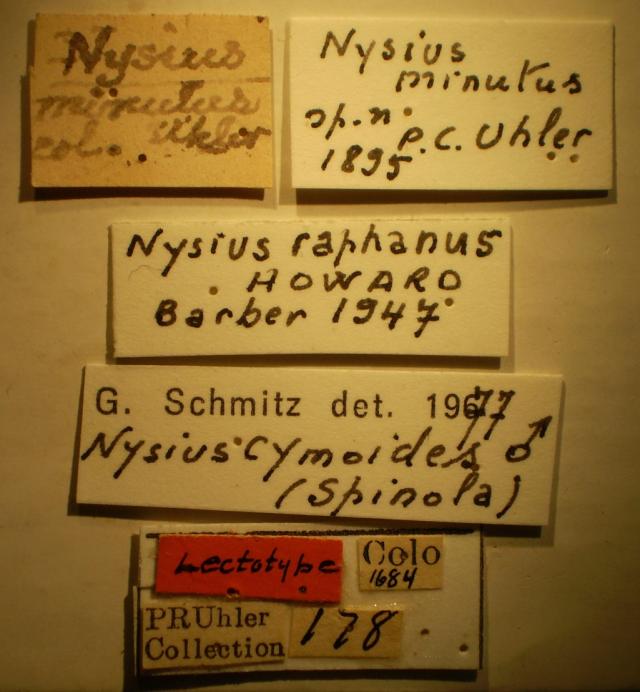 Nysius
minutus
col. Uhler
Nysius
minutus
sp.n. P.C. Uhler
1895
Nysius raphanus
HOWARD
Barber 1947
G. Schmitz det. 1977
Nysius Cymoides ♂
(Spinola)
Lectotype
Colo
1684
PRUhler
Collection
178